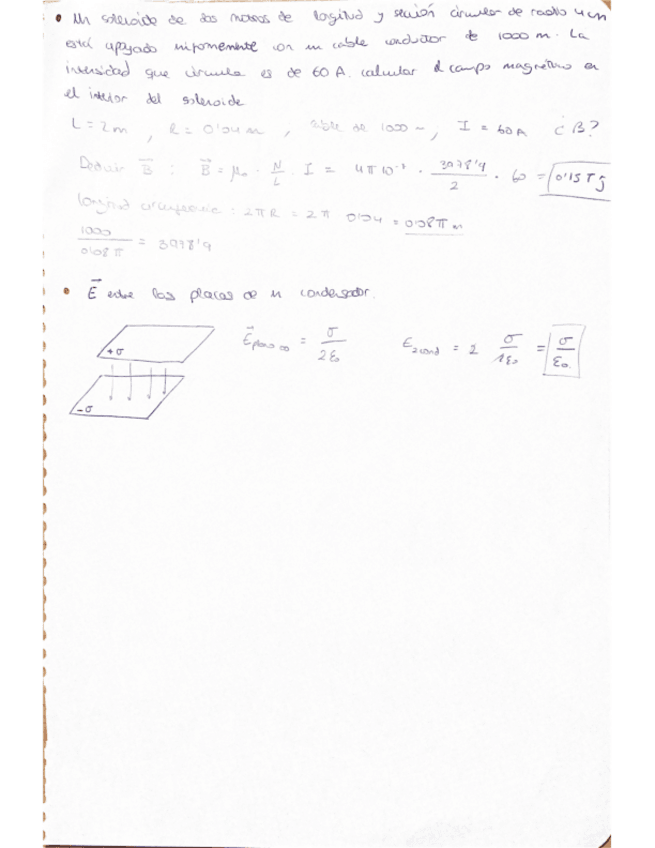 • Un solenoide de dos metros de longitud y sección circular de radio 4 cm
está apoyado uniformemente con un cable conductor de 1000 m. La
intensidad que circula es de 60 A. calcular el campo magnético en
el interior del solenoide
L = 2m , R = 0'04 m , cable de 1000 m, I = 60A ¿B?
Deducir B⃗ : B⃗ = μ₀ · N/L · I = 4π10⁻⁷ · 3978'9/2 · 60 = 0'15 T
longitud circunferencia : 2πR = 2π 0'04 = 0'08π m
1000/0'08π = 3978'9
• E⃗ entre las placas de un condensador.
+σ
-σ
E⃗ plano ∞ = σ/2ε₀
E 2cond = 2 σ/2ε₀ = σ/ε₀